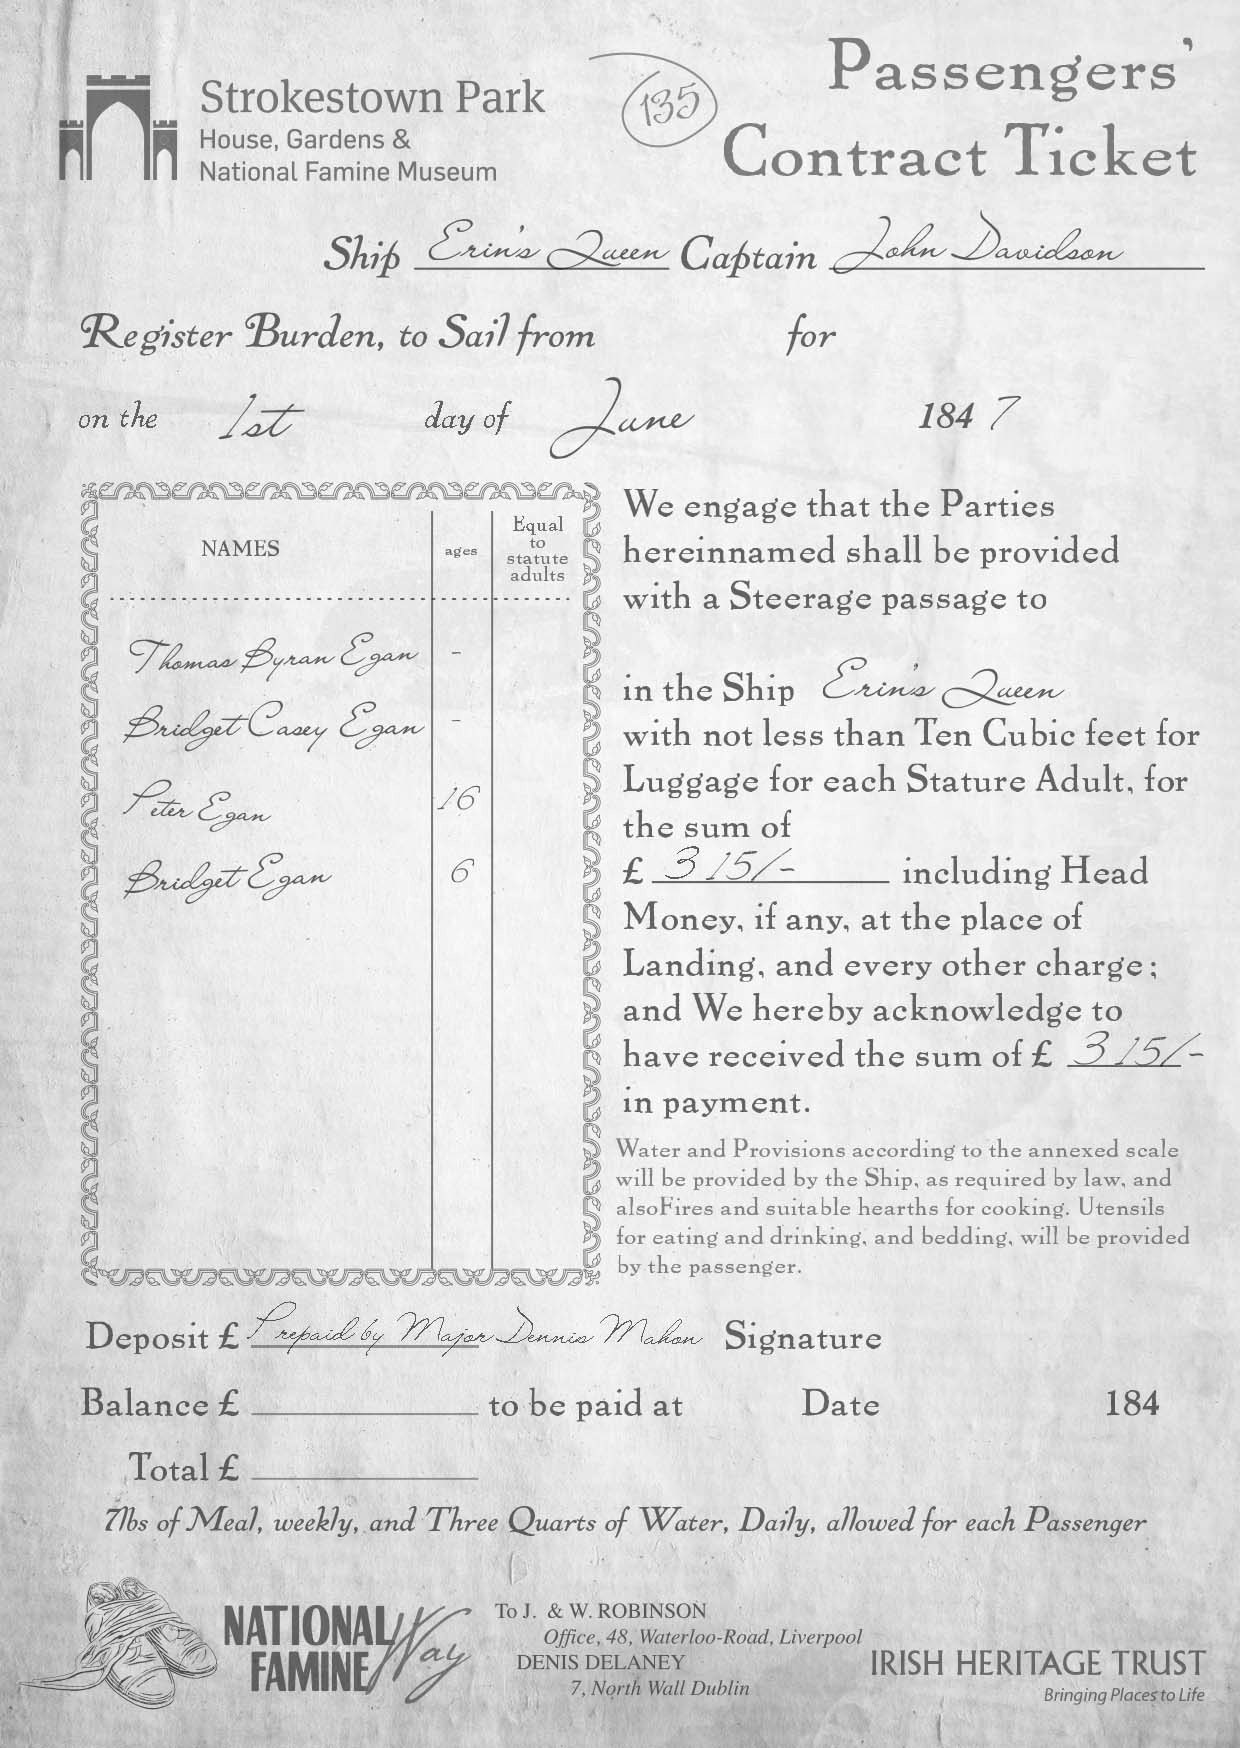 Strokestown Park
House, Gardens &
National Famine Museum
135
Passengers'
Contract Ticket
Ship Erin's Queen Captain John Davidson
Register Burden, to Sail from for
on the 1st day of June 1847
NAMES ages Equal to statute adults
Thomas Byran Egan -
Bridget Casey Egan -
Peter Egan 16
Bridget Egan 6
We engage that the Parties
hereinnamed shall be provided
with a Steerage passage to
in the Ship Erin's Queen
with not less than Ten Cubic feet for
Luggage for each Stature Adult, for
the sum of
£ 3 15/- including Head
Money, if any, at the place of
Landing, and every other charge;
and We hereby acknowledge to
have received the sum of £ 3 15/-
in payment.
Water and Provisions according to the annexed scale
will be provided by the Ship, as required by law, and
alsoFires and suitable hearths for cooking. Utensils
for eating and drinking, and bedding, will be provided
by the passenger.
Deposit £ Prepaid by Major Dennis Mahon Signature
Balance £ to be paid at Date 184
Total £
7lbs of Meal, weekly, and Three Quarts of Water, Daily, allowed for each Passenger
NATIONAL
FAMINE Way
To J. & W. ROBINSON
Office, 48, Waterloo-Road, Liverpool
DENIS DELANEY
7, North Wall Dublin
IRISH HERITAGE TRUST
Bringing Places to Life